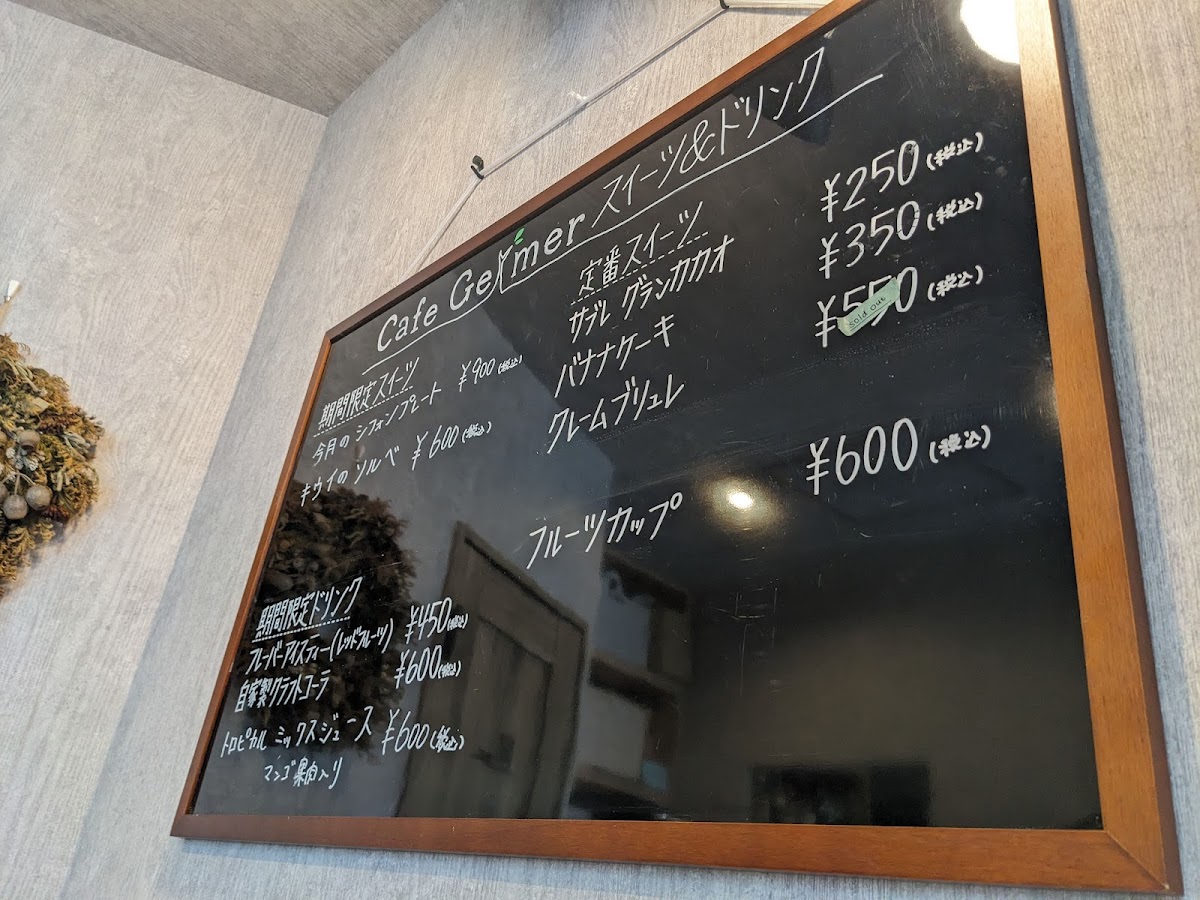 Cafe Germer スイーツ&ドリンク
期間限定スイーツ
今月の シフォンプレート ¥900(税込)
キウイの ソルベ ¥600(税込)
期間限定ドリンク
フレーバーアイスティー(レッドフルーツ) ¥450(税込)
自家製クラフトコーラ ¥600(税込)
トロピカル ミックスジュース ¥600(税込)
マンゴ果肉入り
定番スイーツ
サブレ グランカカオ ¥250(税込)
バナナケーキ ¥350(税込)
クレームブリュレ ¥550(税込)
sold out
フルーツカップ ¥600(税込)